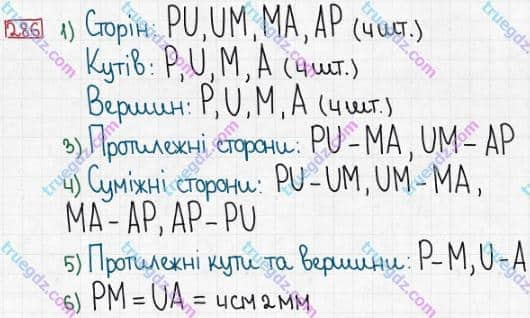 286 1) Сторін: PU, UM, MA, AP (4 шт.)
Кутів: P, U, M, A (4 шт.)
Вершин: P, U, M, A (4 шт.)
3) Протилежні сторони: PU – MA, UM – AP
4) Суміжні сторони: PU – UM, UM – MA,
MA – AP, AP – PU
5) Протилежні кути та вершини: P – M, U – A
6) PM = UA = 4 см 2 мм
truegdz.com